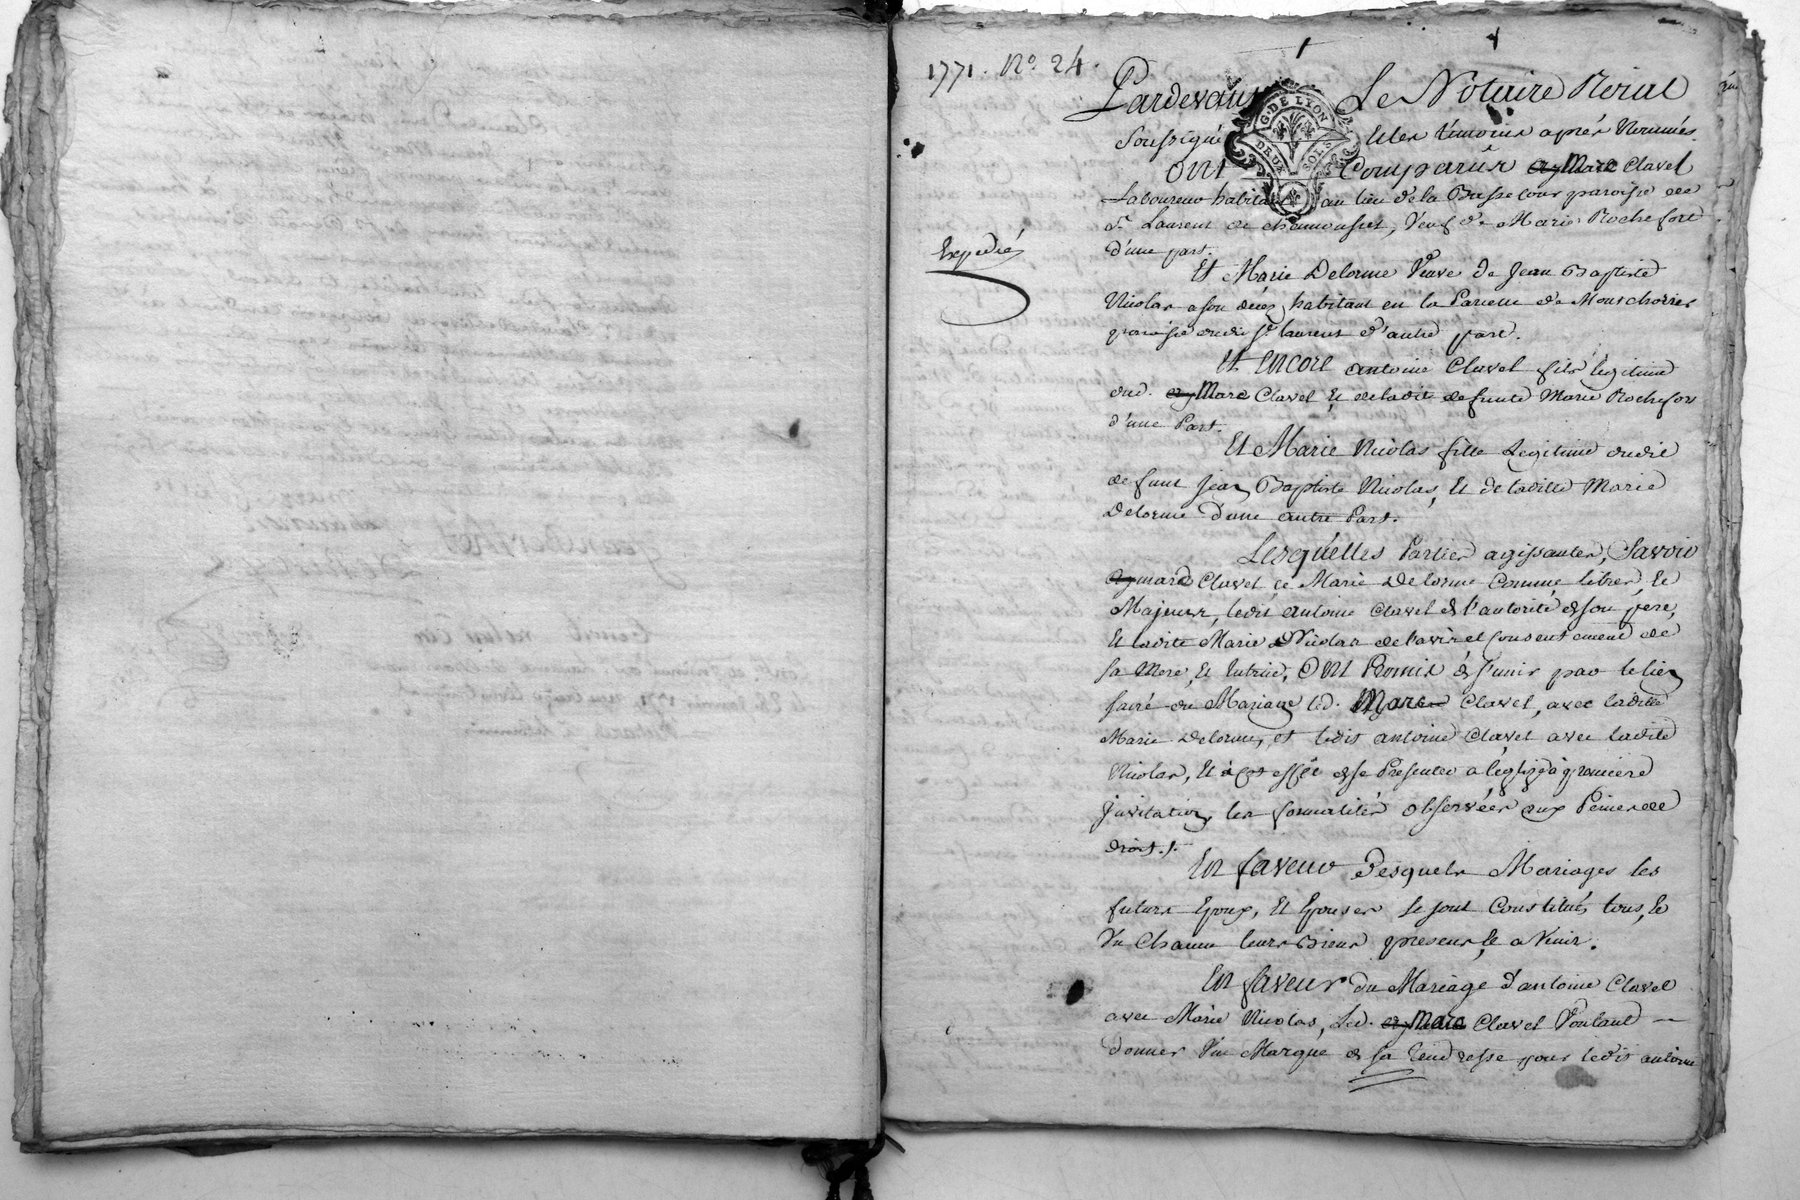 1771. No. 24.
Pardevant Le Notaire Roial
G. DE LYON
DEUX SOLS
Soussigné Et les témoins après Nommés
ont Comparûs Marc Clavel
Laboureur habitant au lieu de la Basse Cour paroisse de
St. Laurent de chamousset, Veuf de Marie Rochefort
d'une part.
Expedié
Et Marie Delorme Veuve de Jean Baptiste
Nicolas a son deces habitant en la Paroisse de
paroisse dudit St. laurent d'autre part.
Et Encore antoine Clavel fils legitime
dud. Marc Clavel Et de ladite defunte Marie Rochefort
d'une Part.
Et Marie Nicolas fille Legitime dudit
defunt Jean Baptiste Nicolas, Et de laditte Marie
Delorme d'une autre Part.
Lesquelles Parties agissantes, Savoir
marc Clavel, et Marie Delorme Comme libres, et
Majeurs, ledit antoine Clavel de l'autorité de son père,
Et ladite Marie Nicolas de l'avis et Consentement de
sa Mere, Et Tutrice, Ont Promis de s'unir par le lien
sacré du Mariage led. Marc Clavel, avec laditte
Marie Delorme, et ledit antoine Clavel avec ladite
Nicolas, Et à cet effét de se Presenter a l'eglise à premiere
Invitation, les formalités observées aux Peines de
droit.
En faveur Desquels Mariages les
futurs Epoux, Et Epouses se sont Constitués tous, et
Un Chacun leurs Biens presens, et a Venir.
En faveur du Mariage d'antoine Clavel
avec Marie Nicolas, Led. Marc Clavel Voulant
donner Une Marque de sa Tendresse pour ledit antoine